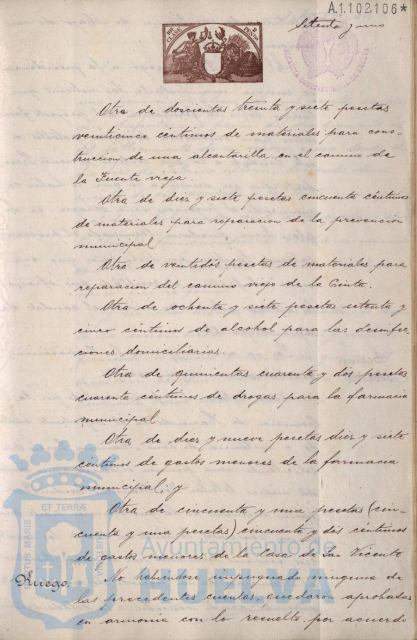 A.1.102.106*
Setenta y uno
Otra de doscientas treinta y siete pesetas
veinticinco céntimos de materiales para cons-
truccion de una alcantarilla en el camino de
la Fuente vieja.
Otra de diez y siete pesetas cincuenta céntimos
de materiales para reparacion de la prevencion
municipal
Otra de veintidós pesetas de materiales para
reparacion del camino viejo de la Cinta.
Otra de ochenta y siete pesetas setenta y
cinco céntimos de alcohol para las desinfec-
ciones domiciliarias.
Otra de quinientas cuarenta y dos pesetas
cuarenta céntimos de drogas para la farmacia
municipal
Otra de diez y nueve pesetas diez y siete
céntimos de gastos menores de la farmacia
municipal; y
Otra de cincuenta y una pesetas (cin-
cuenta y una pesetas) cincuenta y dos céntimos
de gastos menores de la Casa de San Vicente
Ruego. No habiéndose impugnado ninguna de
las precedentes cuentas, quedaron aprobadas
en armonia con lo resuelto por acuerdo
ET TERRÆ
Ayuntamiento de
HUELVA